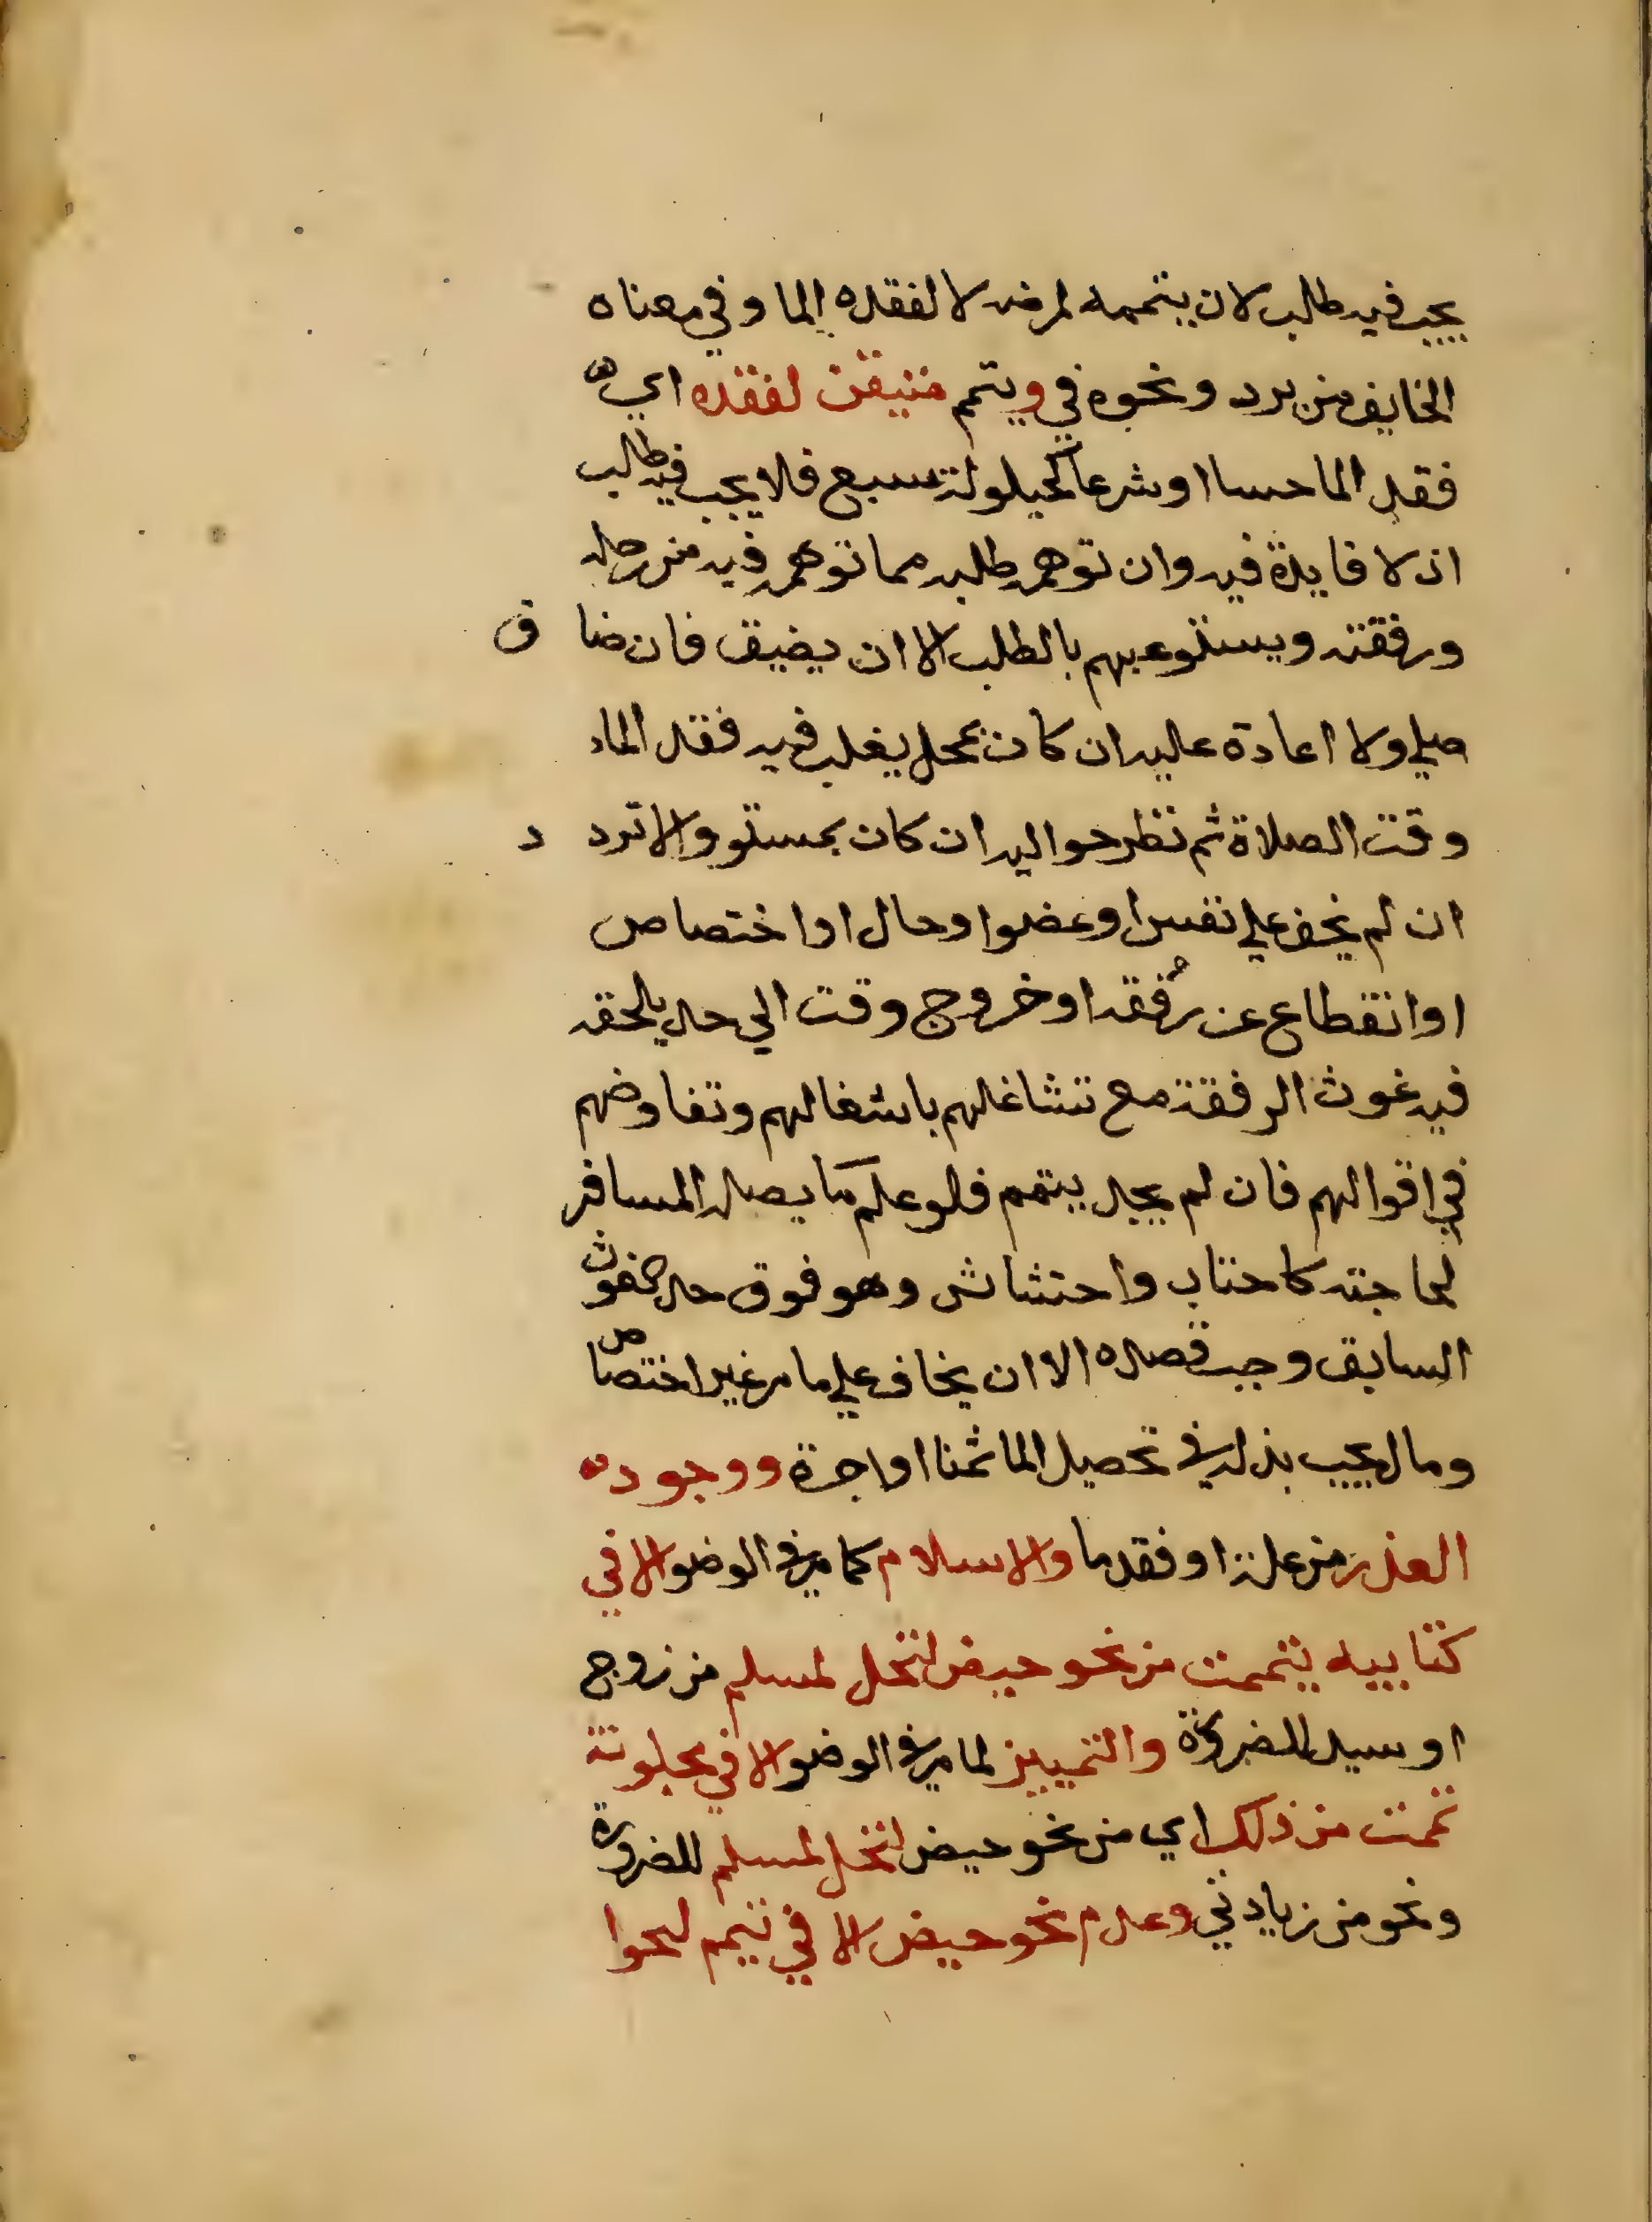 يجب فيه طلب لان يتممه لمرضه لا لفقده الما وفي معناه
الخايف من برد ونحوه في ويتمم متيقن لفقده اي
فقد الما حسا او شرعا كحيلولة سبع فلا يجب فيه طلب
اذ لا فايدة فيه وان توهمه طلبه مما توهمه فيه من رحله
ورفقته ويستوعبهم بالطلب الا ان يضيق فان ضا ق
صلي ولا اعادة عليه ان كان بمحل يغلب فيه فقد الماء
وقت الصلاة ثم نظر حواليه ان كان بمستو والا ترد د
ان لم يخف علي نفس او عضو او حال او اختصاص
او انقطاع عن رفقه او خروج وقت الي حد يلحقه
فيه غوث الرفقة مع تشاغلهم باشغالهم وتفاوضهم
في اقوالهم فان لم يجد يتمم فلو علم ما يصله المسافر
لحاجته كاحتاب واحتشاش وهو فوق حد الغوث
السابق وجب قصده الا ان يخاف علي ما مر غير اختصاص
ومال يجب بذله في تحصيل الما ثمنا او اجرة ووجود
العذر من علة او فقد ما والاسلام كما مر في الوضو الا في
كتابيه يتممت من نحو حيض لتحل لمسلم من زوج
او سيد للضرورة والتمييز لما مر في الوضو الا في مجنونة
تممت من ذلك اي من نحو حيض لتحل لمسلم للضرورة
ونحو من زيادتي وعدم نحو حيض الا في تيمم لحوا